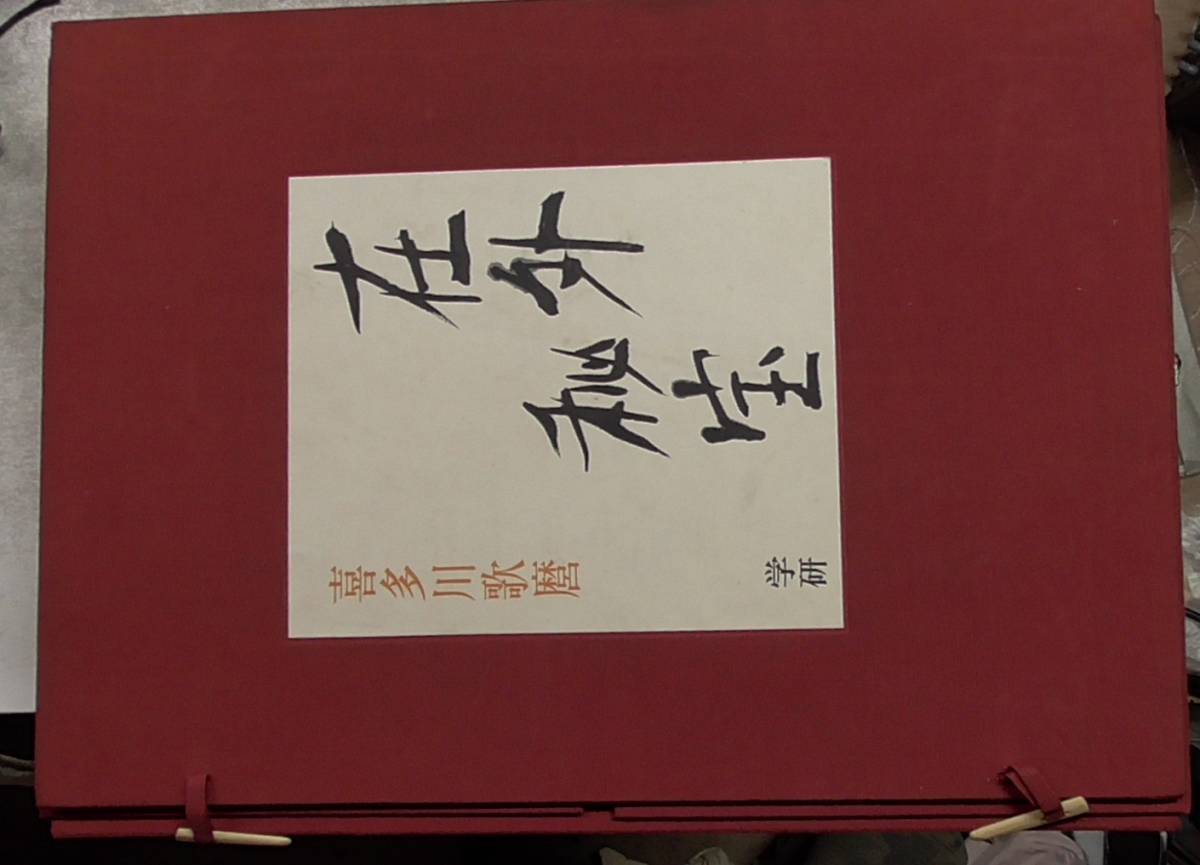 在外
秘宝
喜多川歌麿
学研